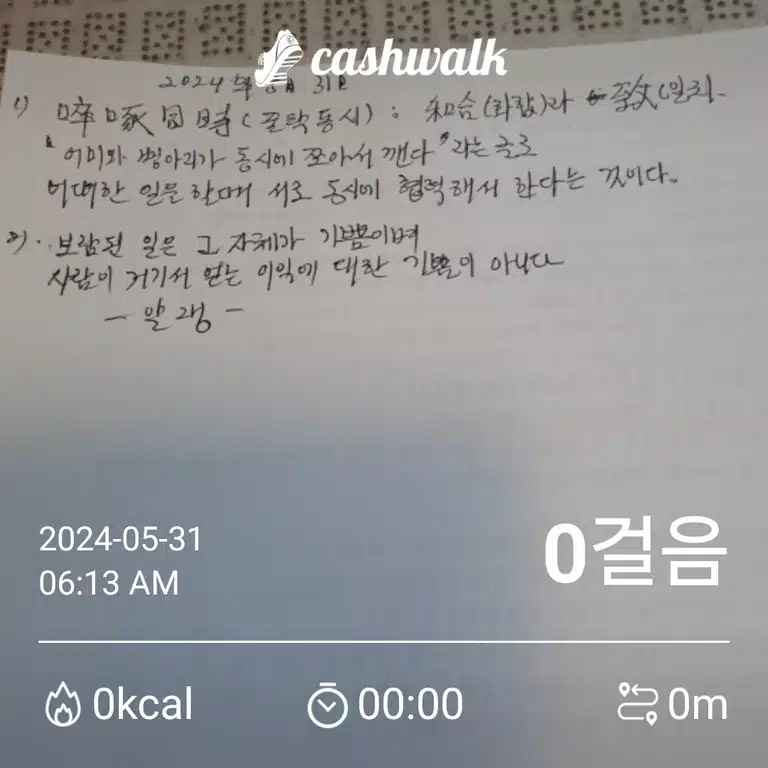 cashwalk
2024年 5月 31日
1) 啐啄同時(줄탁동시): 和合(화합)과 一致(일치).
"어미와 병아리가 동시에 쪼아서 깬다"라는 글로
어떠한 일을 할때 서로 동시에 협력해서 한다는 것이다.
2). 보람된 일은 그 자체가 기쁨이며
사람이 거기서 얻는 이익에 대한 기쁨이 아니다
- 알랭 -
2024-05-31
06:13 AM
0걸음
0kcal
00:00
0m